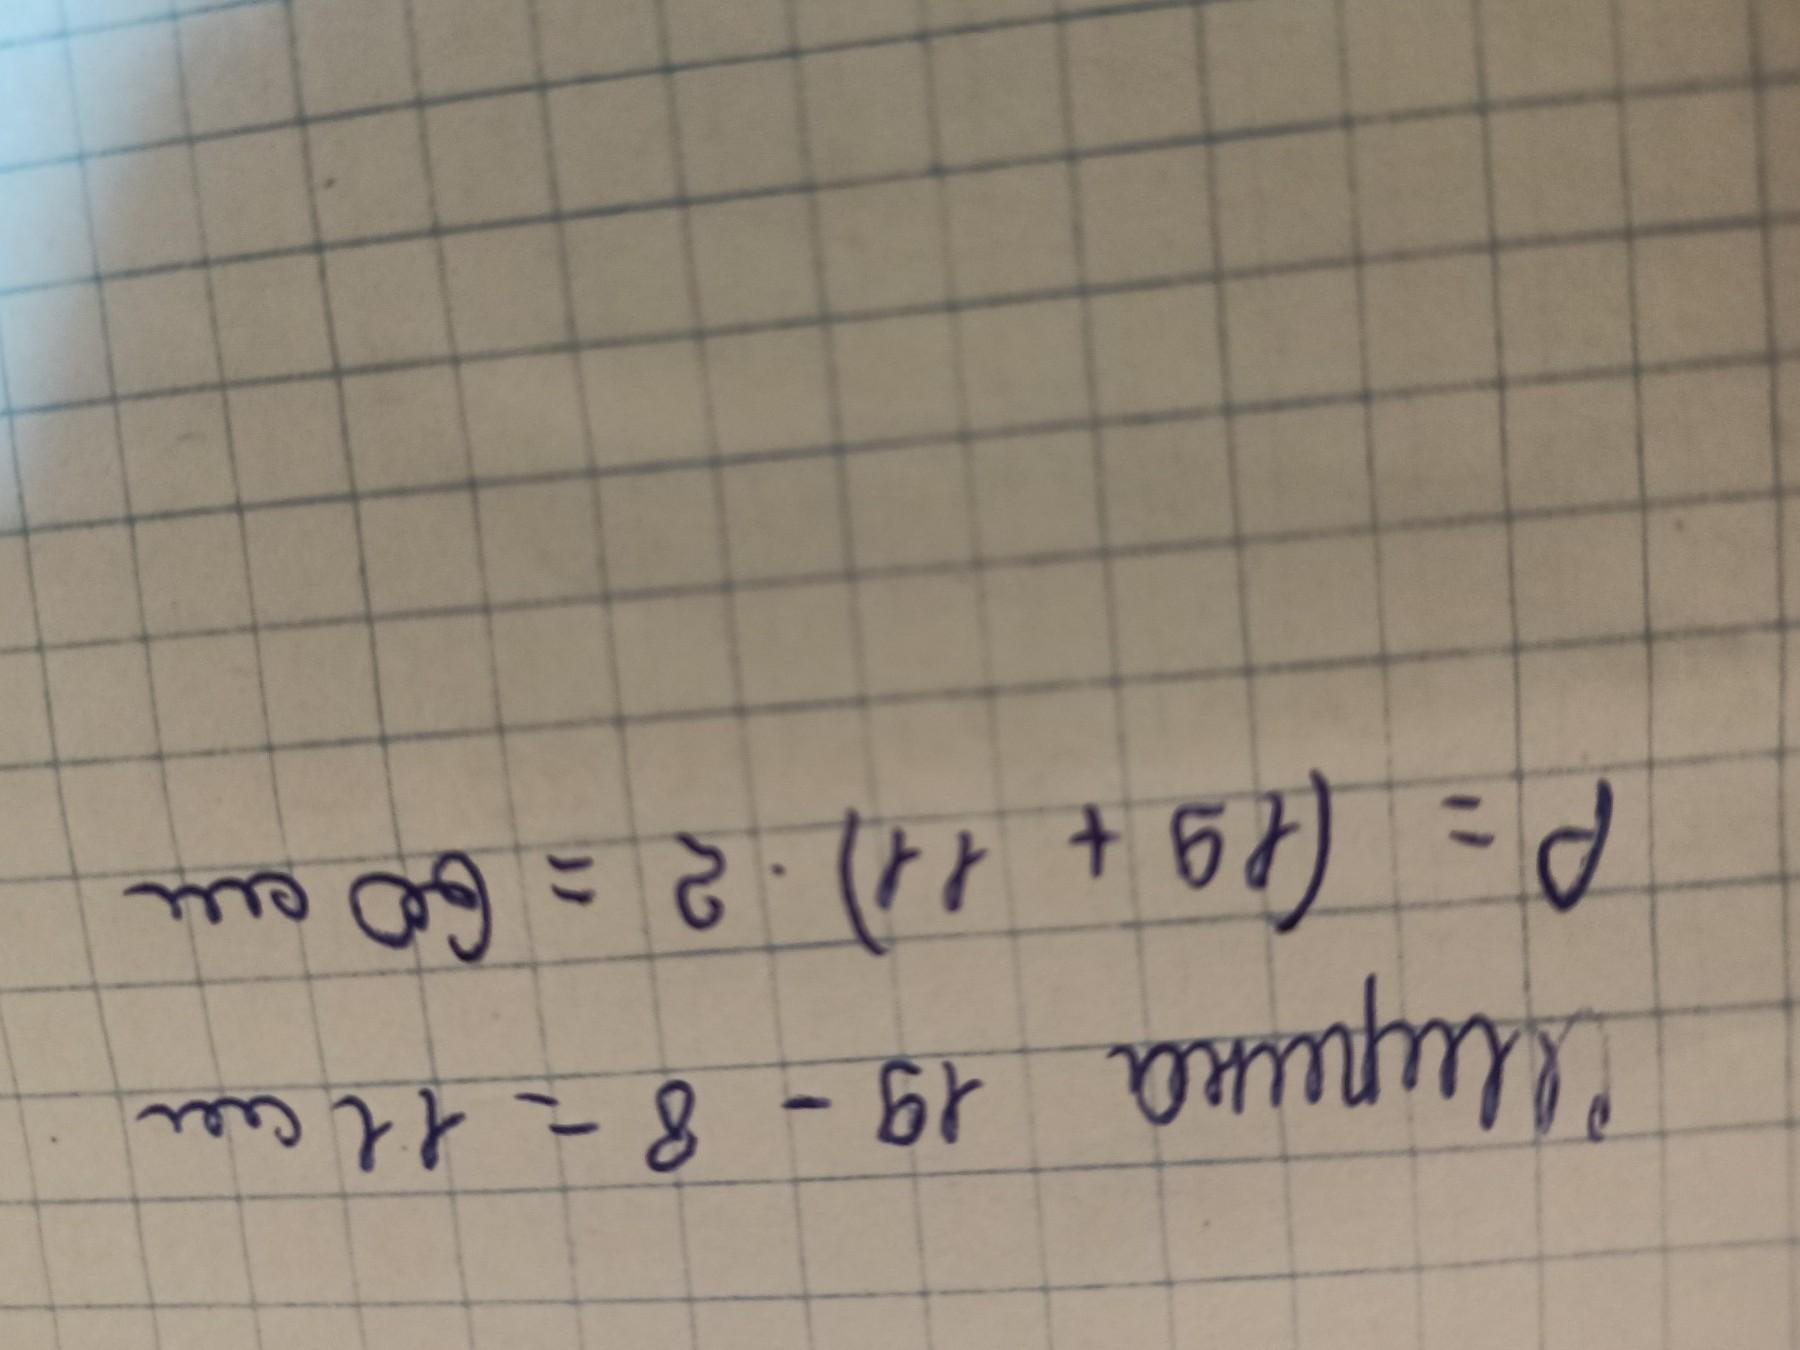 Ширина 19 - 8 = 11 см
P = (19 + 11) · 2 = 60 см